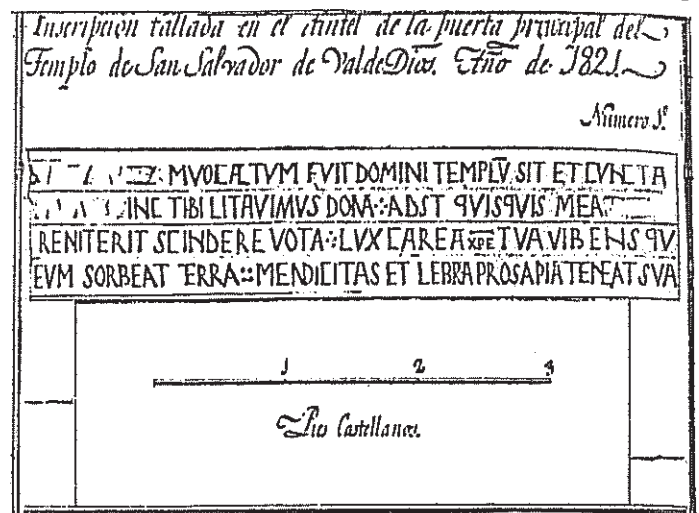 Inscripcion tallada en el dintel de la puerta principal del
Templo de San Salvador de ValdeDios. Año de 1821.
Número 1º
MVOLATVM FVIT DOMINI TEMPLV̄ SIT ET CVNCTA
INC TIBI LITAVIMVS DONA ADST QVISQVIS MEA
RENITERIT SCINDERE VOTA LVX CAREA XPE TVA VIBENS QV
EVM SORBEAT TERRA MENDICITAS ET LEBRA PROSAPIA TENEAT SVA
1 2 3
Pies Castellanos.